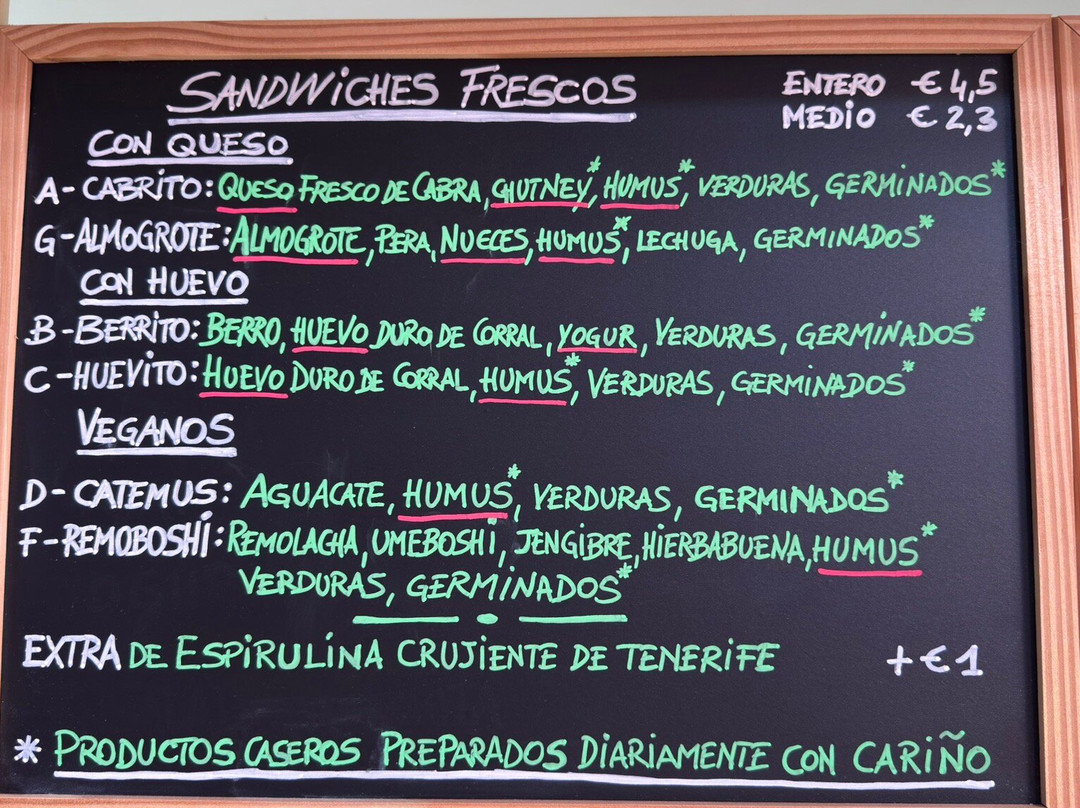 SANDWICHES FRESCOS
ENTERO € 4,5
MEDIO € 2,3
CON QUESO
A - CABRITO: QUESO FRESCO DE CABRA, CHUTNEY*, HUMUS*, VERDURAS, GERMINADOS*
G - ALMOGROTE: ALMOGROTE, PERA, NUECES, HUMUS*, LECHUGA, GERMINADOS*
CON HUEVO
B - BERRITO: BERRO, HUEVO DURO DE CORRAL, YOGUR, VERDURAS, GERMINADOS*
C - HUEVITO: HUEVO DURO DE CORRAL, HUMUS*, VERDURAS, GERMINADOS*
VEGANOS
D - CATEMUS: AGUACATE, HUMUS*, VERDURAS, GERMINADOS*
F - REMOBOSHI: REMOLACHA, UMEBOSHI, JENGIBRE, HIERBABUENA, HUMUS*
VERDURAS, GERMINADOS*
EXTRA DE ESPIRULÍNA CRUJIENTE DE TENERIFE +€1
* PRODUCTOS CASEROS PREPARADOS DIARIAMENTE CON CARIÑO